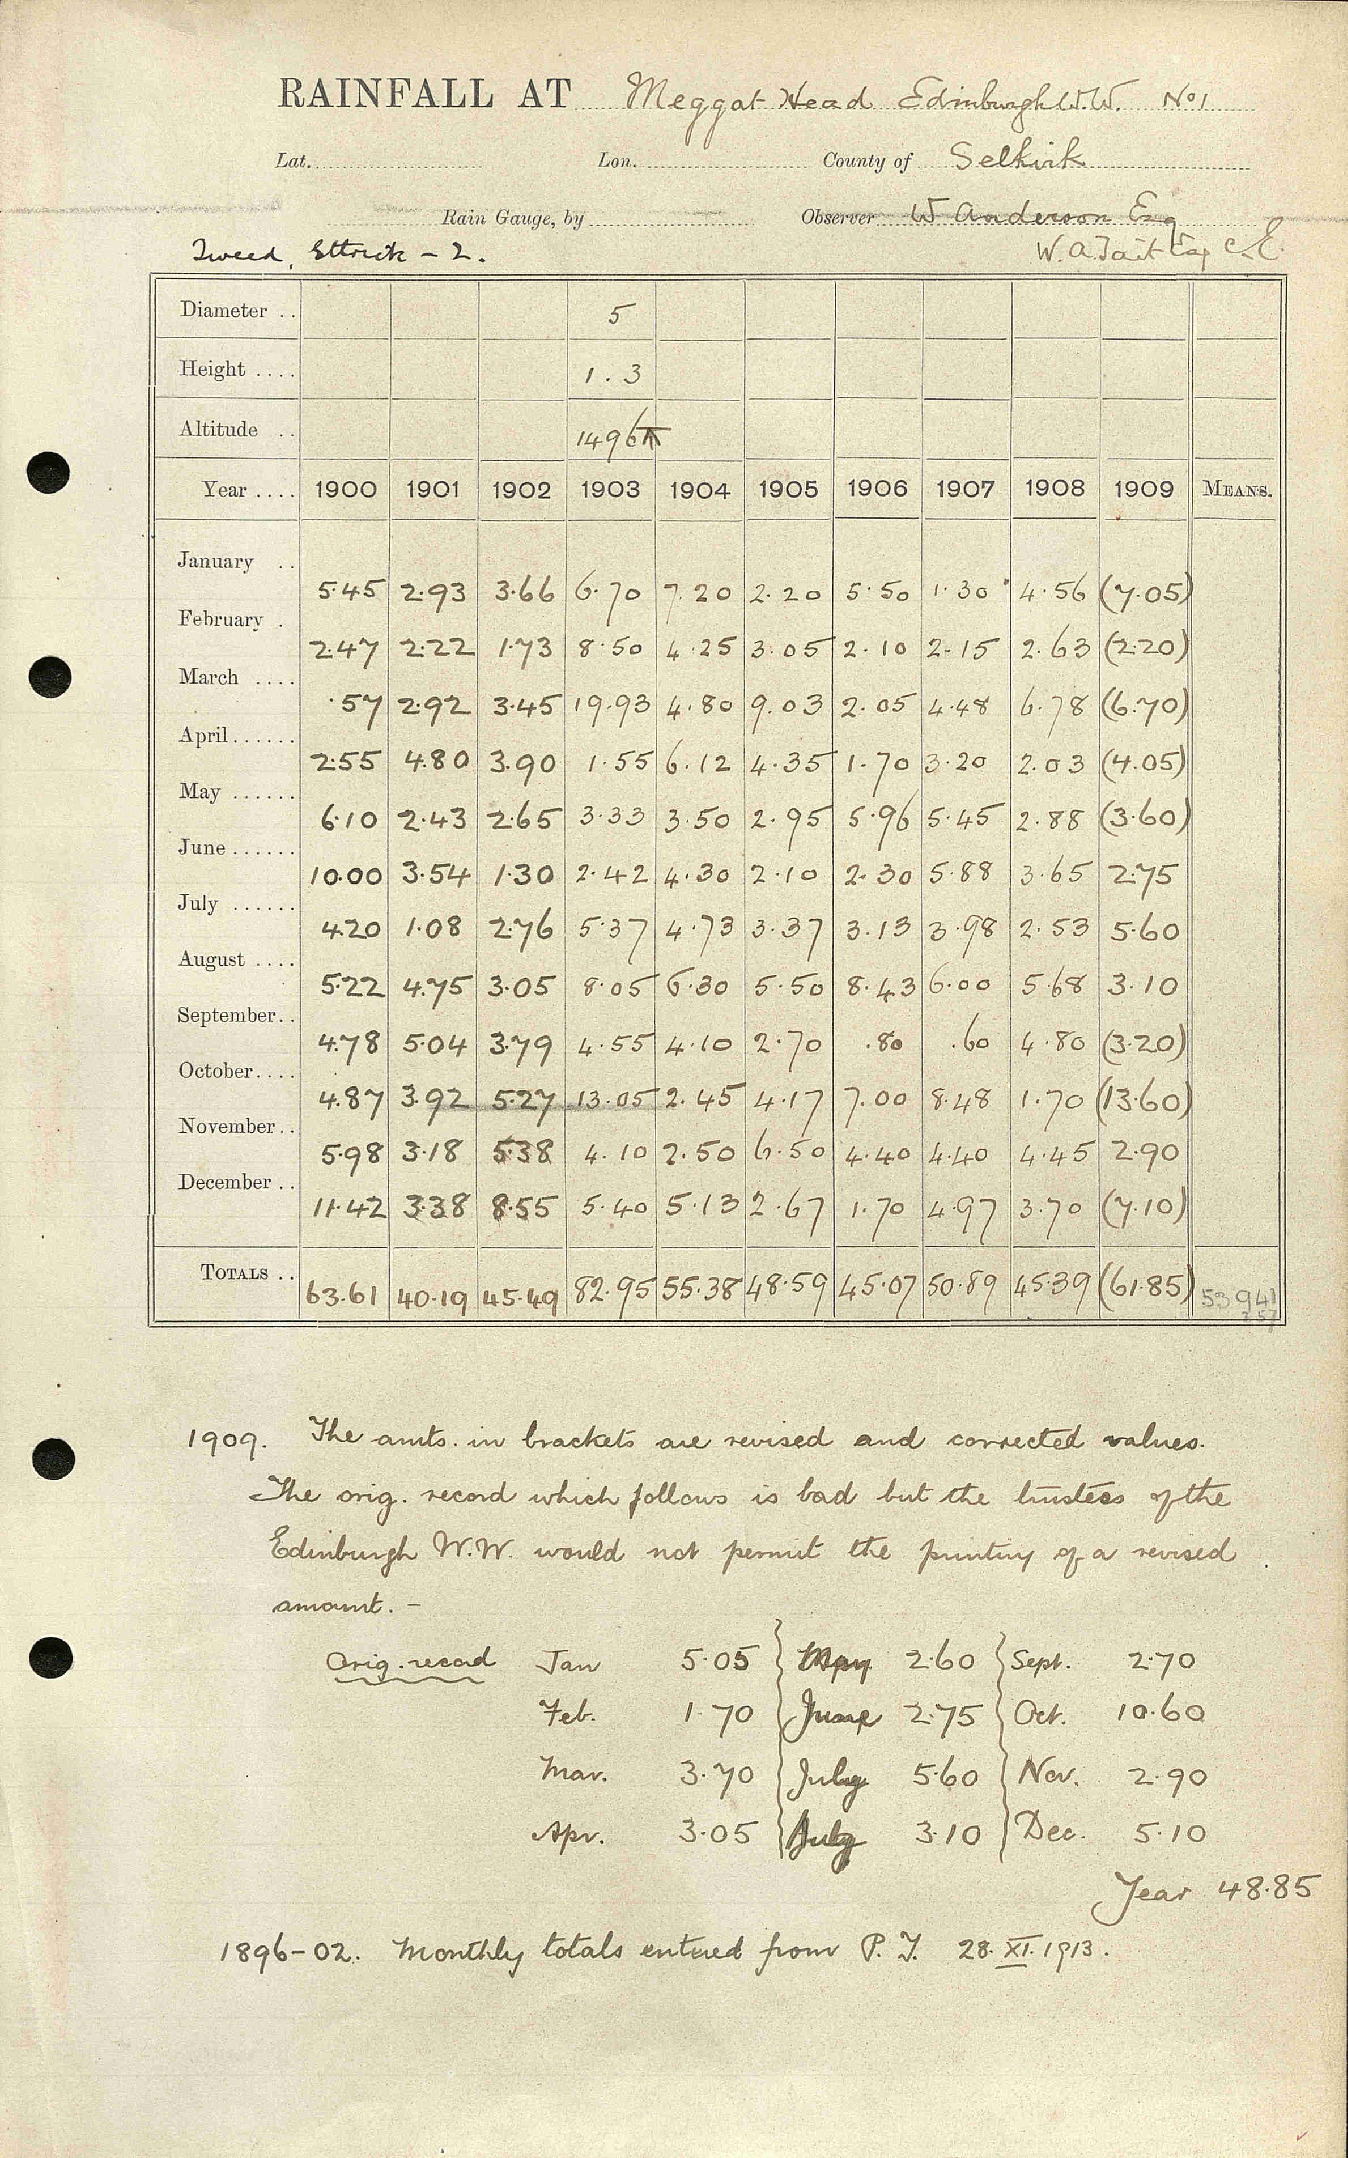 RAINFALL AT Meggat Head Edinburgh W.W. No 1
Lat. Lon. County of Selkirk
Rain Gauge, by Observer W Anderson Esq
Tweed, Ettrick - 2. W. A Tait Esq C.E.
Diameter .. 5
Height .... 1.3
Altitude .. 1496
Year .... 1900 1901 1902 1903 1904 1905 1906 1907 1908 1909 MEANS.
January .. 5.45 2.93 3.66 6.70 7.20 2.20 5.50 1.30 4.56 (7.05)
February . 2.47 2.22 1.73 8.50 4.25 3.05 2.10 2.15 2.63 (2.20)
March .... .57 2.92 3.45 19.93 4.80 9.03 2.05 4.48 6.78 (6.70)
April...... 2.55 4.80 3.90 1.55 6.12 4.35 1.70 3.20 2.03 (4.05)
May ...... 6.10 2.43 2.65 3.33 3.50 2.95 5.96 5.45 2.88 (3.60)
June...... 10.00 3.54 1.30 2.42 4.30 2.10 2.30 5.88 3.65 2.75
July ...... 4.20 1.08 2.76 5.37 4.73 3.37 3.13 3.98 2.53 5.60
August .... 5.22 4.75 3.05 8.05 6.30 5.50 8.43 6.00 5.68 3.10
September.. 4.78 5.04 3.79 4.55 4.10 2.70 .80 .60 4.80 (3.20)
October.... 4.87 3.92 5.27 13.05 2.45 4.17 7.00 8.48 1.70 (13.60)
November.. 5.98 3.18 5.38 4.10 2.50 6.50 4.40 4.40 4.45 2.90
December .. 11.42 3.38 8.55 5.40 5.13 2.67 1.70 4.97 3.70 (7.10)
TOTALS .. 63.61 40.19 45.49 82.95 55.38 48.59 45.07 50.89 45.39 (61.85) 53 941
1909. The amts. in brackets are revised and corrected values.
The orig. record which follows is bad but the trustees of the
Edinburgh W.W. would not permit the printing of a revised
amount. -
Orig. record Jan 5.05 May 2.60 Sept. 2.70
Feb. 1.70 June 2.75 Oct. 10.60
Mar. 3.70 July 5.60 Nov. 2.90
Apr. 3.05 3.10 Dec. 5.10
Year 48.85
1896-02. Monthly totals entered from P. T. 28.XI.1913.